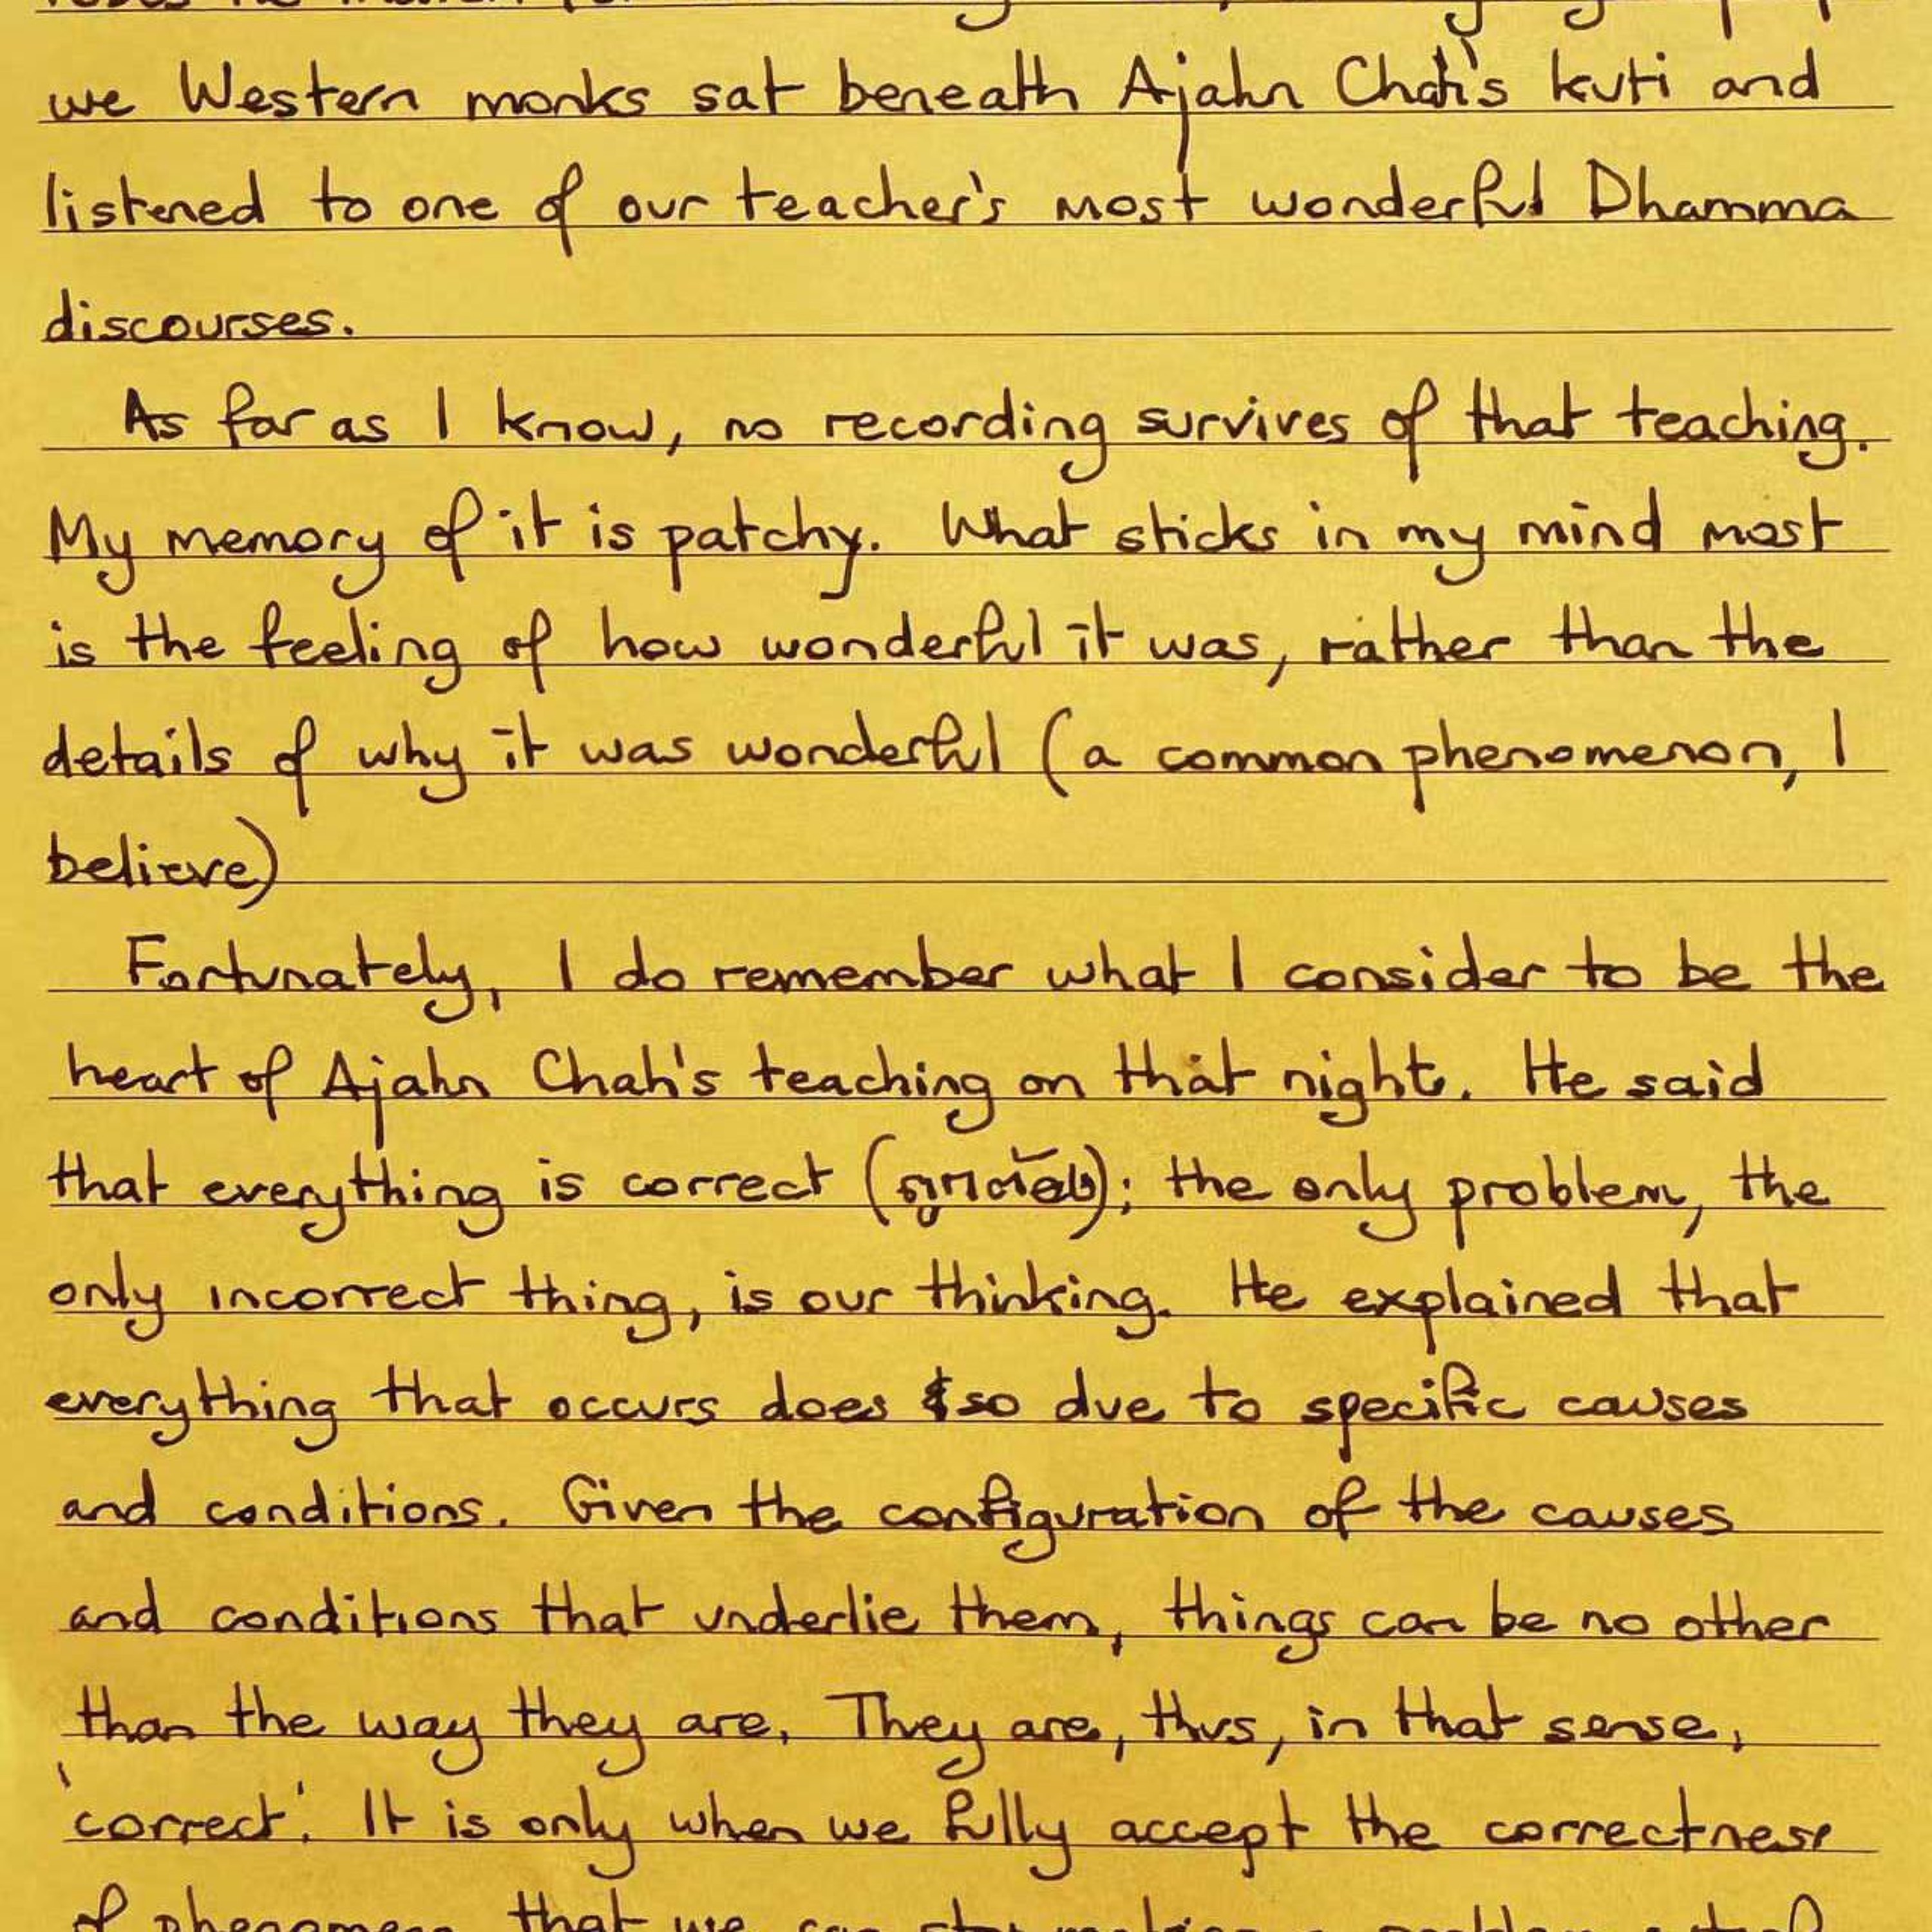 we Western monks sat beneath Ajahn Chah's kuti and
listened to one of our teacher's most wonderful Dhamma
discourses.
As far as I know, no recording survives of that teaching.
My memory of it is patchy. What sticks in my mind most
is the feeling of how wonderful it was, rather than the
details of why it was wonderful (a common phenomenon, I
believe)
Fortunately, I do remember what I consider to be the
heart of Ajahn Chah's teaching on that night. He said
that everything is correct (ถูกต้อง); the only problem, the
only incorrect thing, is our thinking. He explained that
everything that occurs does so due to specific causes
and conditions. Given the configuration of the causes
and conditions that underlie them, things can be no other
than the way they are. They are, thus, in that sense,
'correct'. It is only when we fully accept the correctness
of phenomena that we can stop making a problem out of